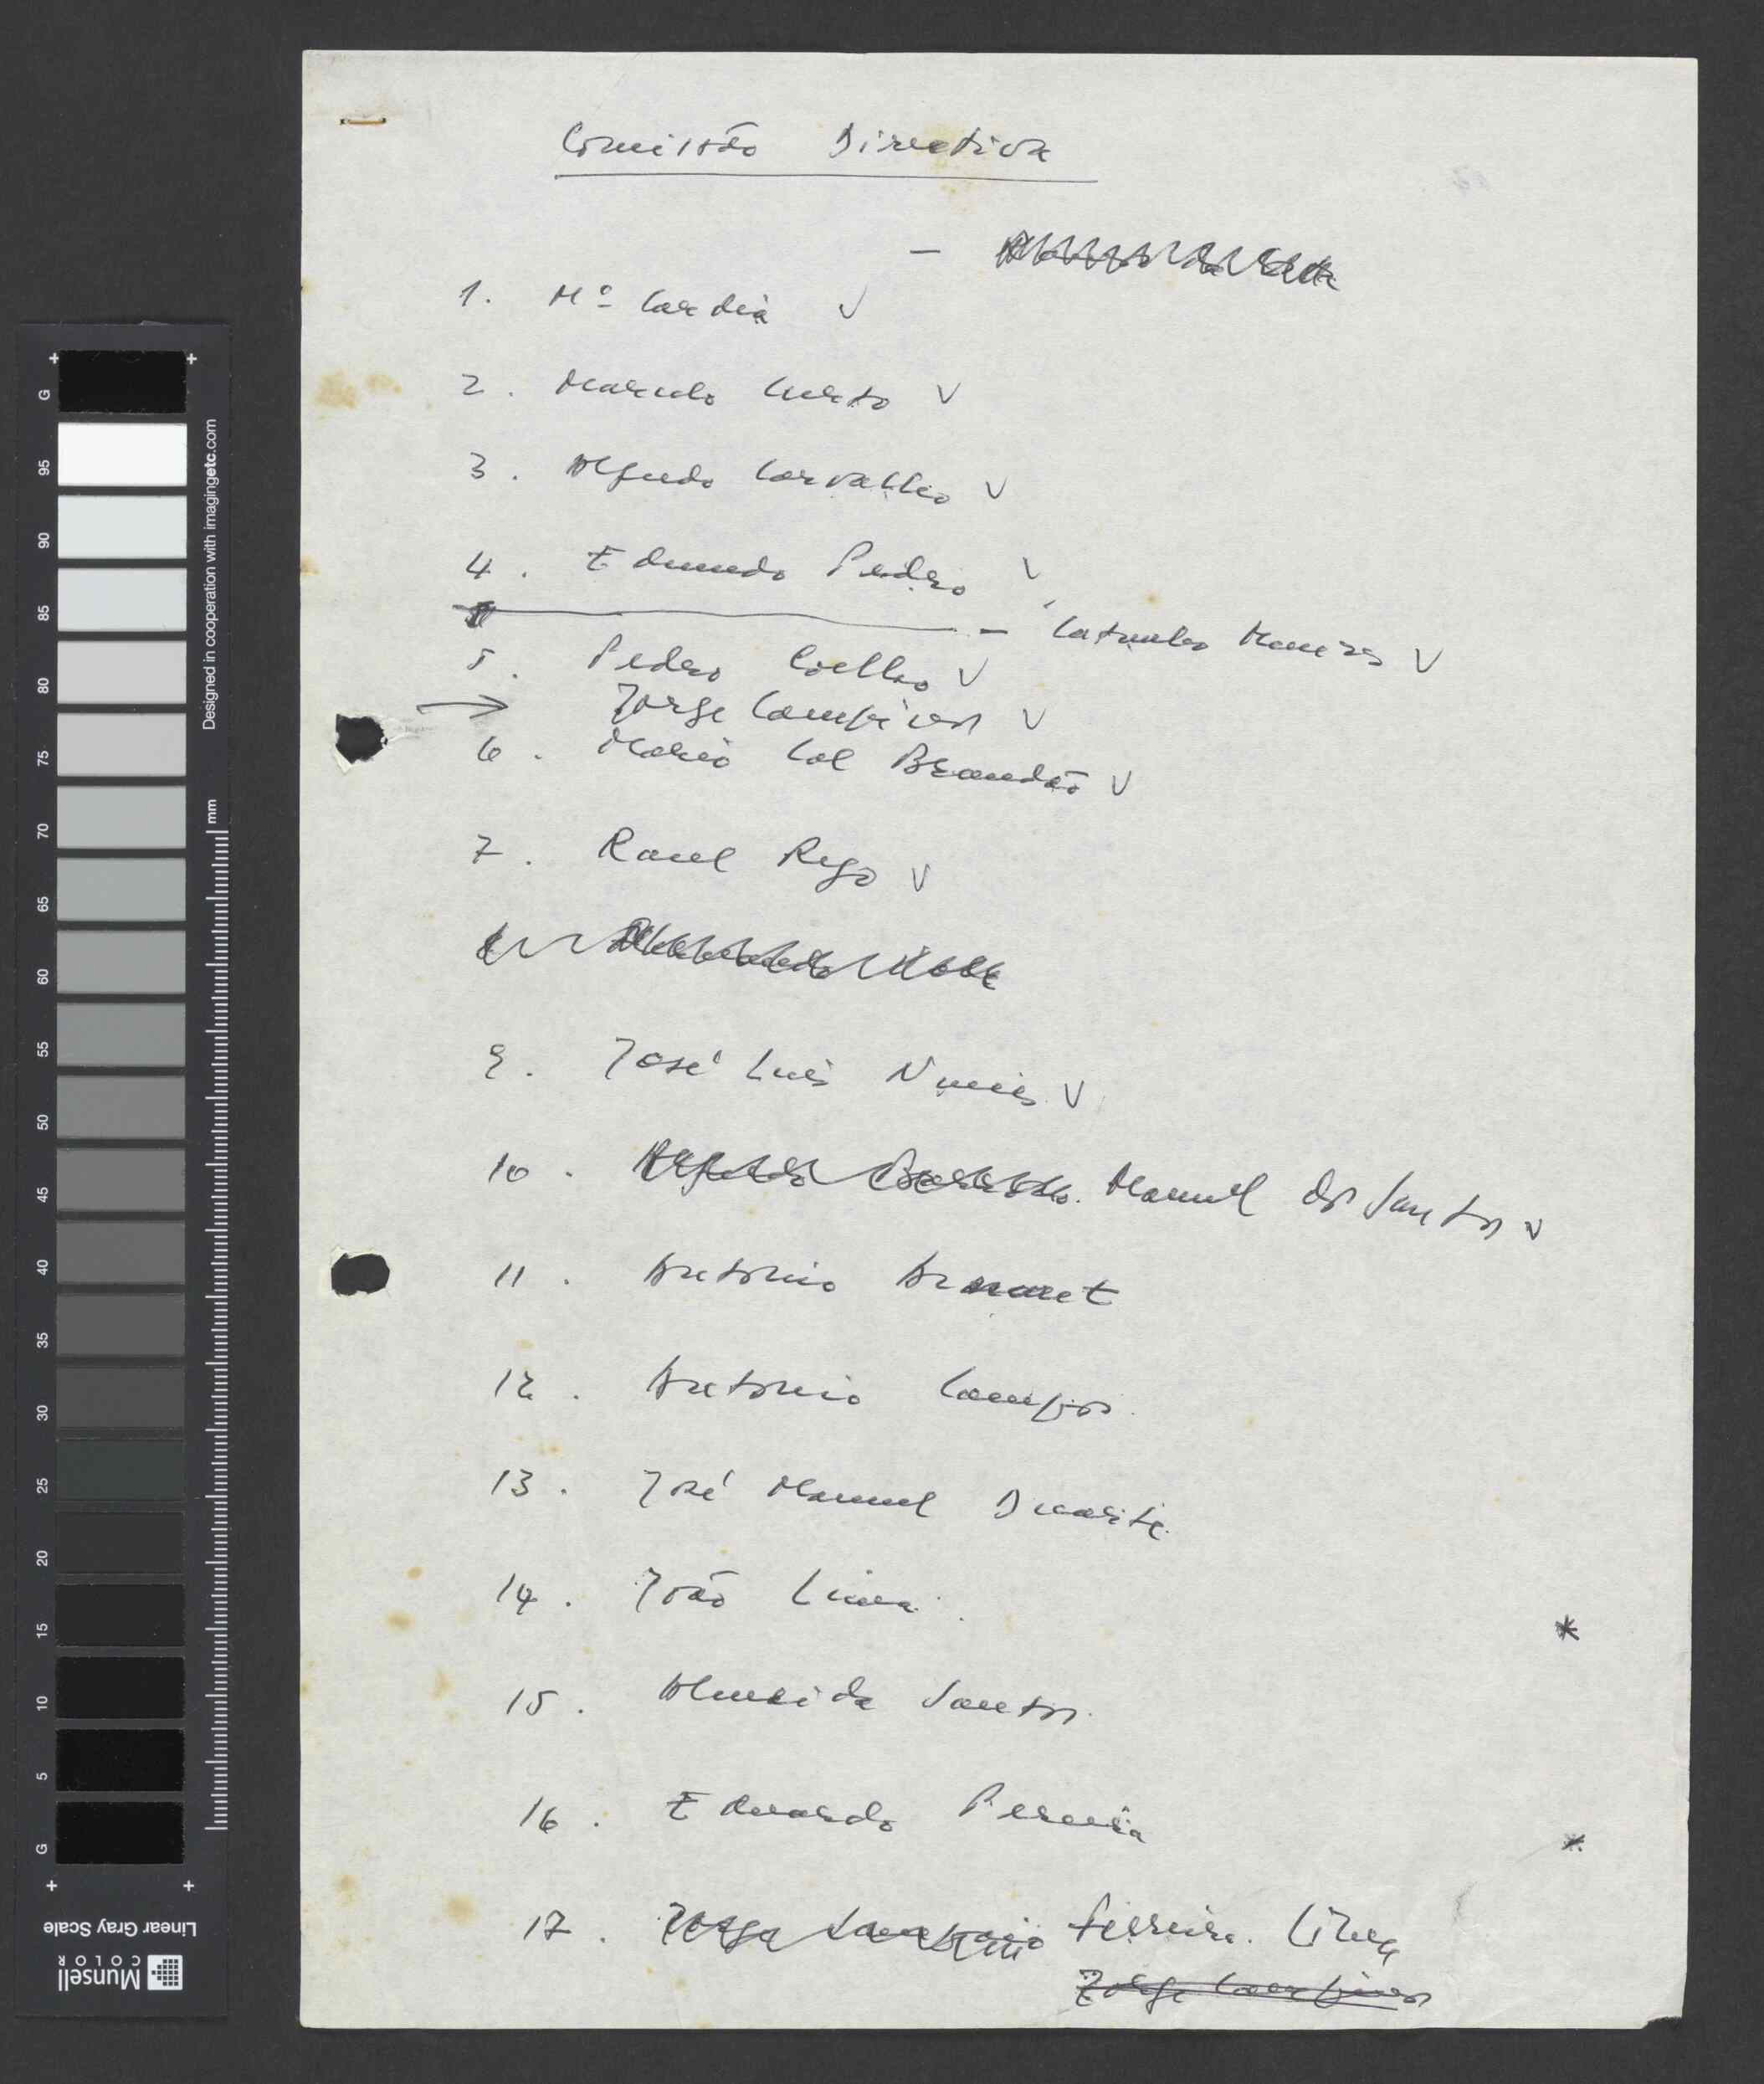 Comissão Directiva
1. Mº Cardia V
2. Marcelo Curto V
3. Alfredo Carvalho V
4. Edmundo Pedro V
- Catanho Menezes V
5. Pedro Coelho V
→ Jorge Campinos V
6. Mario Cal Brandão V
7. Raul Rego V
9. José Luis Nunes V
10. Manuel dos Santos V
11. Antonio Arnaut
12. Antonio Campos
13. José Manuel Duarte
14. João Lima
*
15. Almeida Santos
16. Eduardo Pereira
*
17. Jorge Sampaio Ferreira Lima
Jorge Campinos
G 95 90 85 80 75 70 65 60 55 50 45 40 35 30 25 20 15 10 5 G
Designed in cooperation with imagingetc.com
mm
Linear Gray Scale
Munsell
COLOR